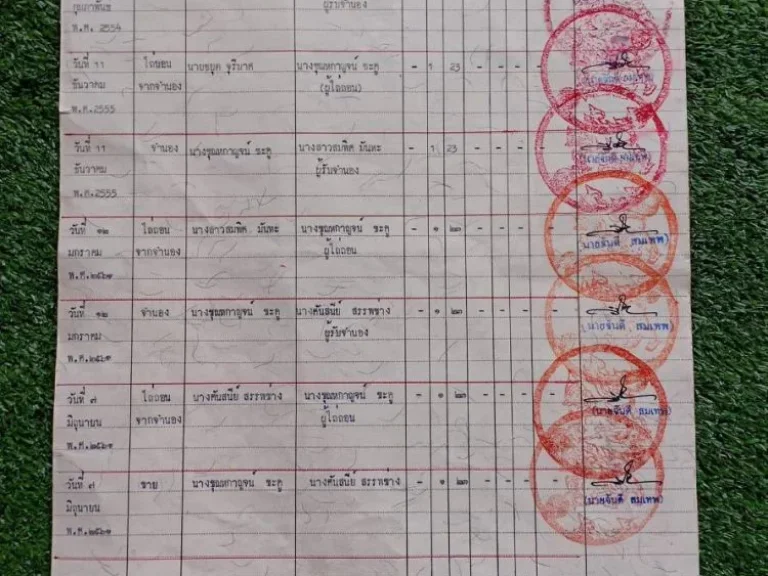 กุมภาพันธ์ ผู้รับจำนอง
พ.ศ. 2554
วันที่ 11 ไถ่ถอน นางขุณหกาญจน์ ชะคู - 1 23 - - - -
ธันวาคม จากจำนอง (ผู้ไถ่ถอน)
พ.ศ.2555
วันที่ 11 จำนอง นางขุณหกาญจน์ ชะคู นางสาวสมพิศ มันทะ - 1 23 - - - -
ธันวาคม ผู้รับจำนอง
พ.ศ.2555
วันที่ ๑๒ ไถ่ถอน นางสาวสมพิศ มันทะ นางขุณหกาญจน์ ชะคู - ๑ ๒๓ - - - -
มกราคม จากจำนอง ผู้ไถ่ถอน (นายจันดี สมเทพ)
พ.ศ.๒๕๖๑
วันที่ ๑๒ จำนอง นางขุณหกาญจน์ ชะคู นางคันสนีย์ สรรพช่าง - ๑ ๒๓ - - - -
มกราคม ผู้รับจำนอง (นายจันดี สมเทพ)
พ.ศ.๒๕๖๑
วันที่ ๗ ไถ่ถอน นางคันสนีย์ สรรพช่าง นางขุณหกาญจน์ ชะคู - ๑ ๒๓ - - - -
มิถุนายน จากจำนอง ผู้ไถ่ถอน (นายจันดี สมเทพ)
พ.ศ.๒๕๖๑
วันที่ ๗ ขาย นางขุณหกาญจน์ ชะคู นางคันสนีย์ สรรพช่าง - ๑ ๒๓ - - - -
มิถุนายน (นายจันดี สมเทพ)
พ.ศ.๒๕๖๑